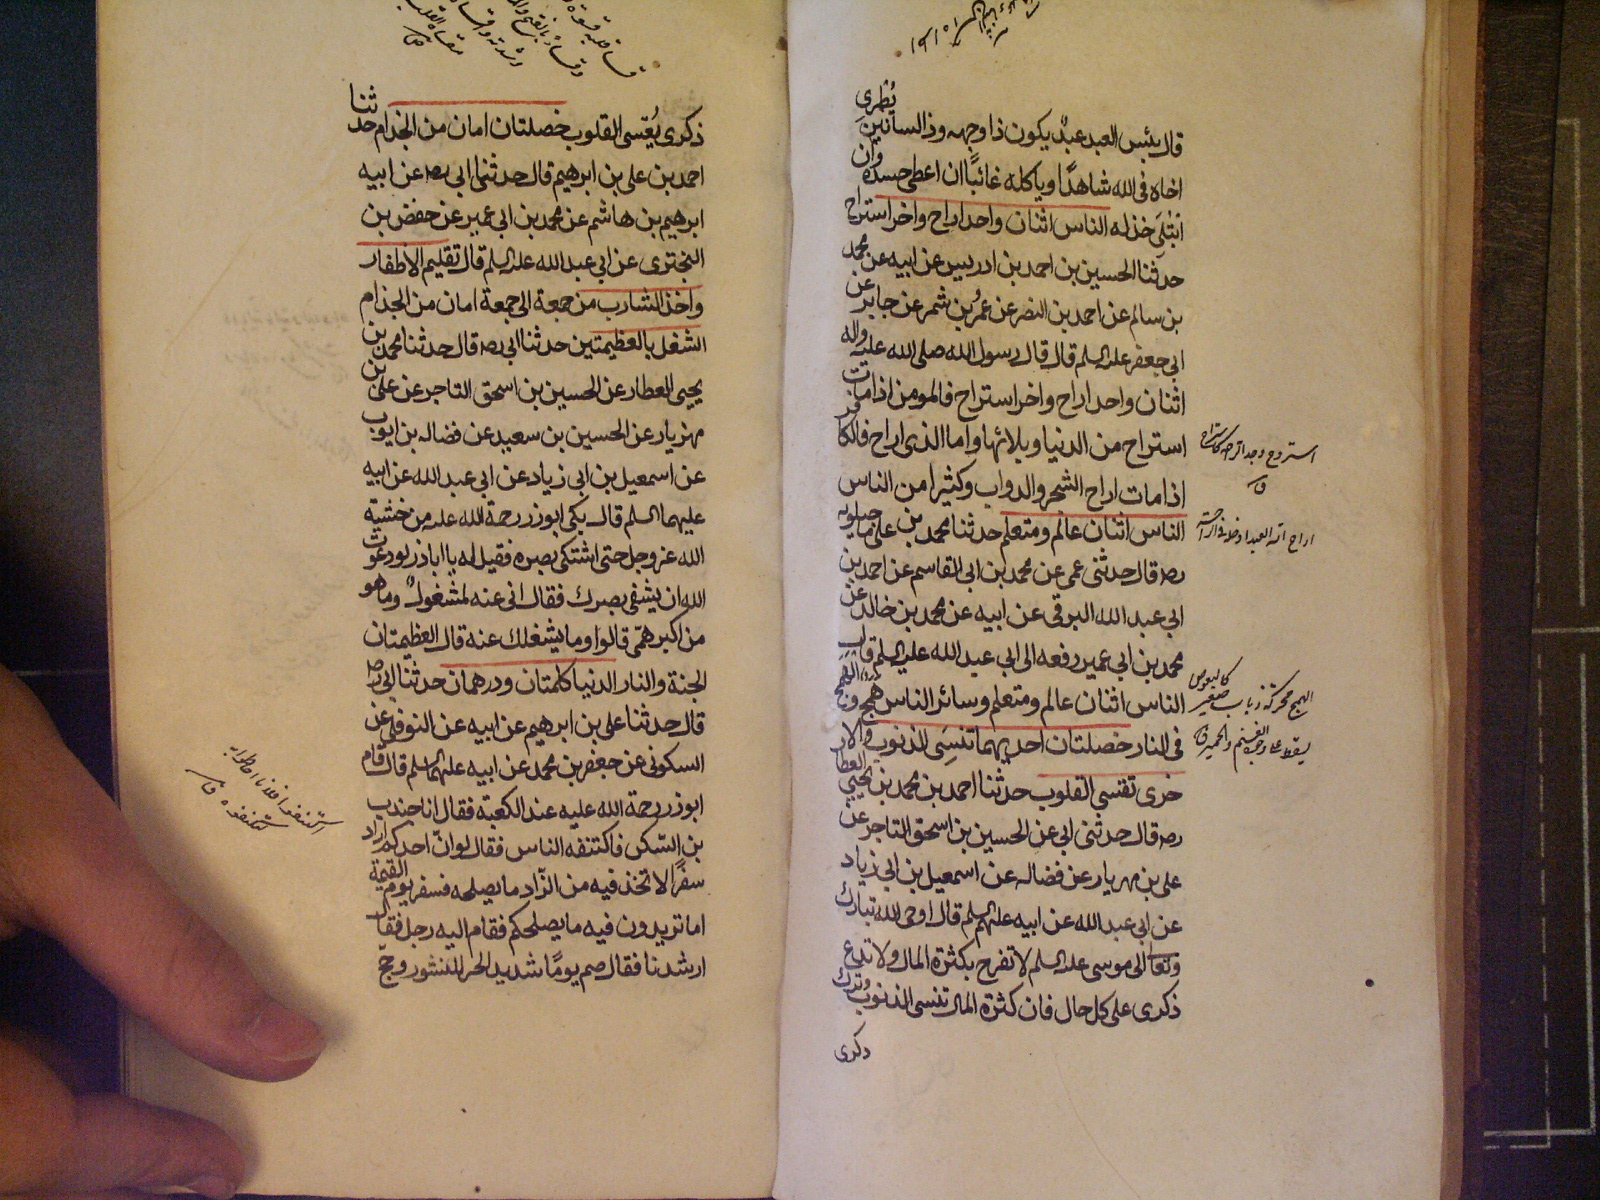 يُطْرِي
قال بئس العبد عبدٌ يكون ذا وجهه وذا لسانين
اخاه فى الله شاهدًا وياكله غائبًا ان اعطى حسده وان
ابتلى خذله الناس اثنان واحد اراح واخر استراح
حدثنا الحسين بن احمد بن ادريس عن ابيه عن محمد
بن سالم عن احمد بن النضر عن عمرو بن شمر عن جابر عن
ابى جعفر عليه السلم قال قال رسول الله صلى الله عليه واله
اثنان واحد اراح واخر استراح فالمومن اذا مات
استراح من الدنيا وبلائها واما الذى اراح فالكافر
اذا مات اراح الشجر والدواب وكثيرا من الناس
الناس اثنان عالم ومتعلم حدثنا محمد بن على ماجيلويه
ره قال حدثنى عمى عن محمد بن ابى القاسم عن احمد بن
ابى عبد الله البرقى عن ابيه عن محمد بن خالد عن
محمد بن ابى عمير رفعه الى ابى عبد الله عليه السلم قال
الناس اثنان عالم ومتعلم وسائر الناس همج والهمج
فى النار خصلتان احديهما تنسى الذنوب والا
خرى تقسى القلوب حدثنا احمد بن محمد بن يحيى العطار
ره قال حدثنى ابى عن الحسين بن اسحق التاجر عن
على بن مهريار عن فضاله عن اسمعيل بن ابى زياد
عن ابى عبد الله عن ابيه عليهم السلم قال اوحى الله تبارك
وتعا الى موسى عليه السلم لا تفرح بكثرة المال ولا تدع
ذكرى على كل حال فان كثرة المال تنسى الذنوب وترك
ذكرى
استروح وجد الراحة كاستراح
ق
اراح الله العبد ادخله فى الراحة
الهمج محركة ذباب صغير كالبعوض
يسقط على وجوه الغنم والحمير ق
ذكرى يُقسى القلوب خصلتان امان من الجذام حدثنا
احمد بن على بن ابرهيم قال حدثنى ابى ره عن ابيه
ابرهيم بن هاشم عن محمد بن ابى عمير عن حفص بن
البخترى عن ابى عبد الله عليه السلم قال تقليم الاظفار
واخذ الشارب من جمعة الى جمعة امان من الجذام
الشغل بالعظيمتين حدثنا ابى ره قال حدثنا محمد بن
يحيى العطار عن الحسين بن اسحق التاجر عن على بن
مهزيار عن الحسين بن سعيد عن فضاله بن ايوب
عن اسمعيل بن ابى زياد عن ابى عبد الله عن ابيه
عليهما السلم قال بكى ابوذر رحمة الله عليه من خشية
الله عز وجل حتى اشتكى بصره فقيل له يا اباذر لو دعوت
الله ان يشفى بصرك فقال انى عنه لمشغولٌ وما هو
من اكبر همّى قالوا وما يشغلك عنه قال العظيمتان
الجنة والنار الدنيا كلمتان ودرهمان حدثنا ابى ره
قال حدثنا على بن ابرهيم عن ابيه عن النوفلى عن
السكونى عن جعفر بن محمد عن ابيه عليهما السلم قال قام
ابوذر رحمة الله عليه عند الكعبة فقال انا جندب
بن السكن فاكتنفه الناس فقال لو انّ احدكم اراد
سفرًا لاتخذ فيه من الزّاد ما يصلحه فسفر يوم القيمة
اما تريدون فيه ما يصلحكم فقام اليه رجل فقال
ارشدنا فقال صم يومًا شديد الحر للنشور وحج
اكتنفوا فلانا احاطوا به
كتكنفوه ق